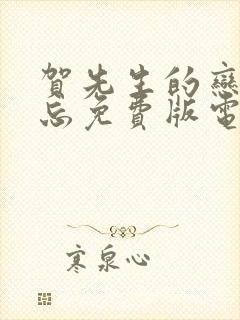 賀先生的戀
忘免費版電
寒泉心